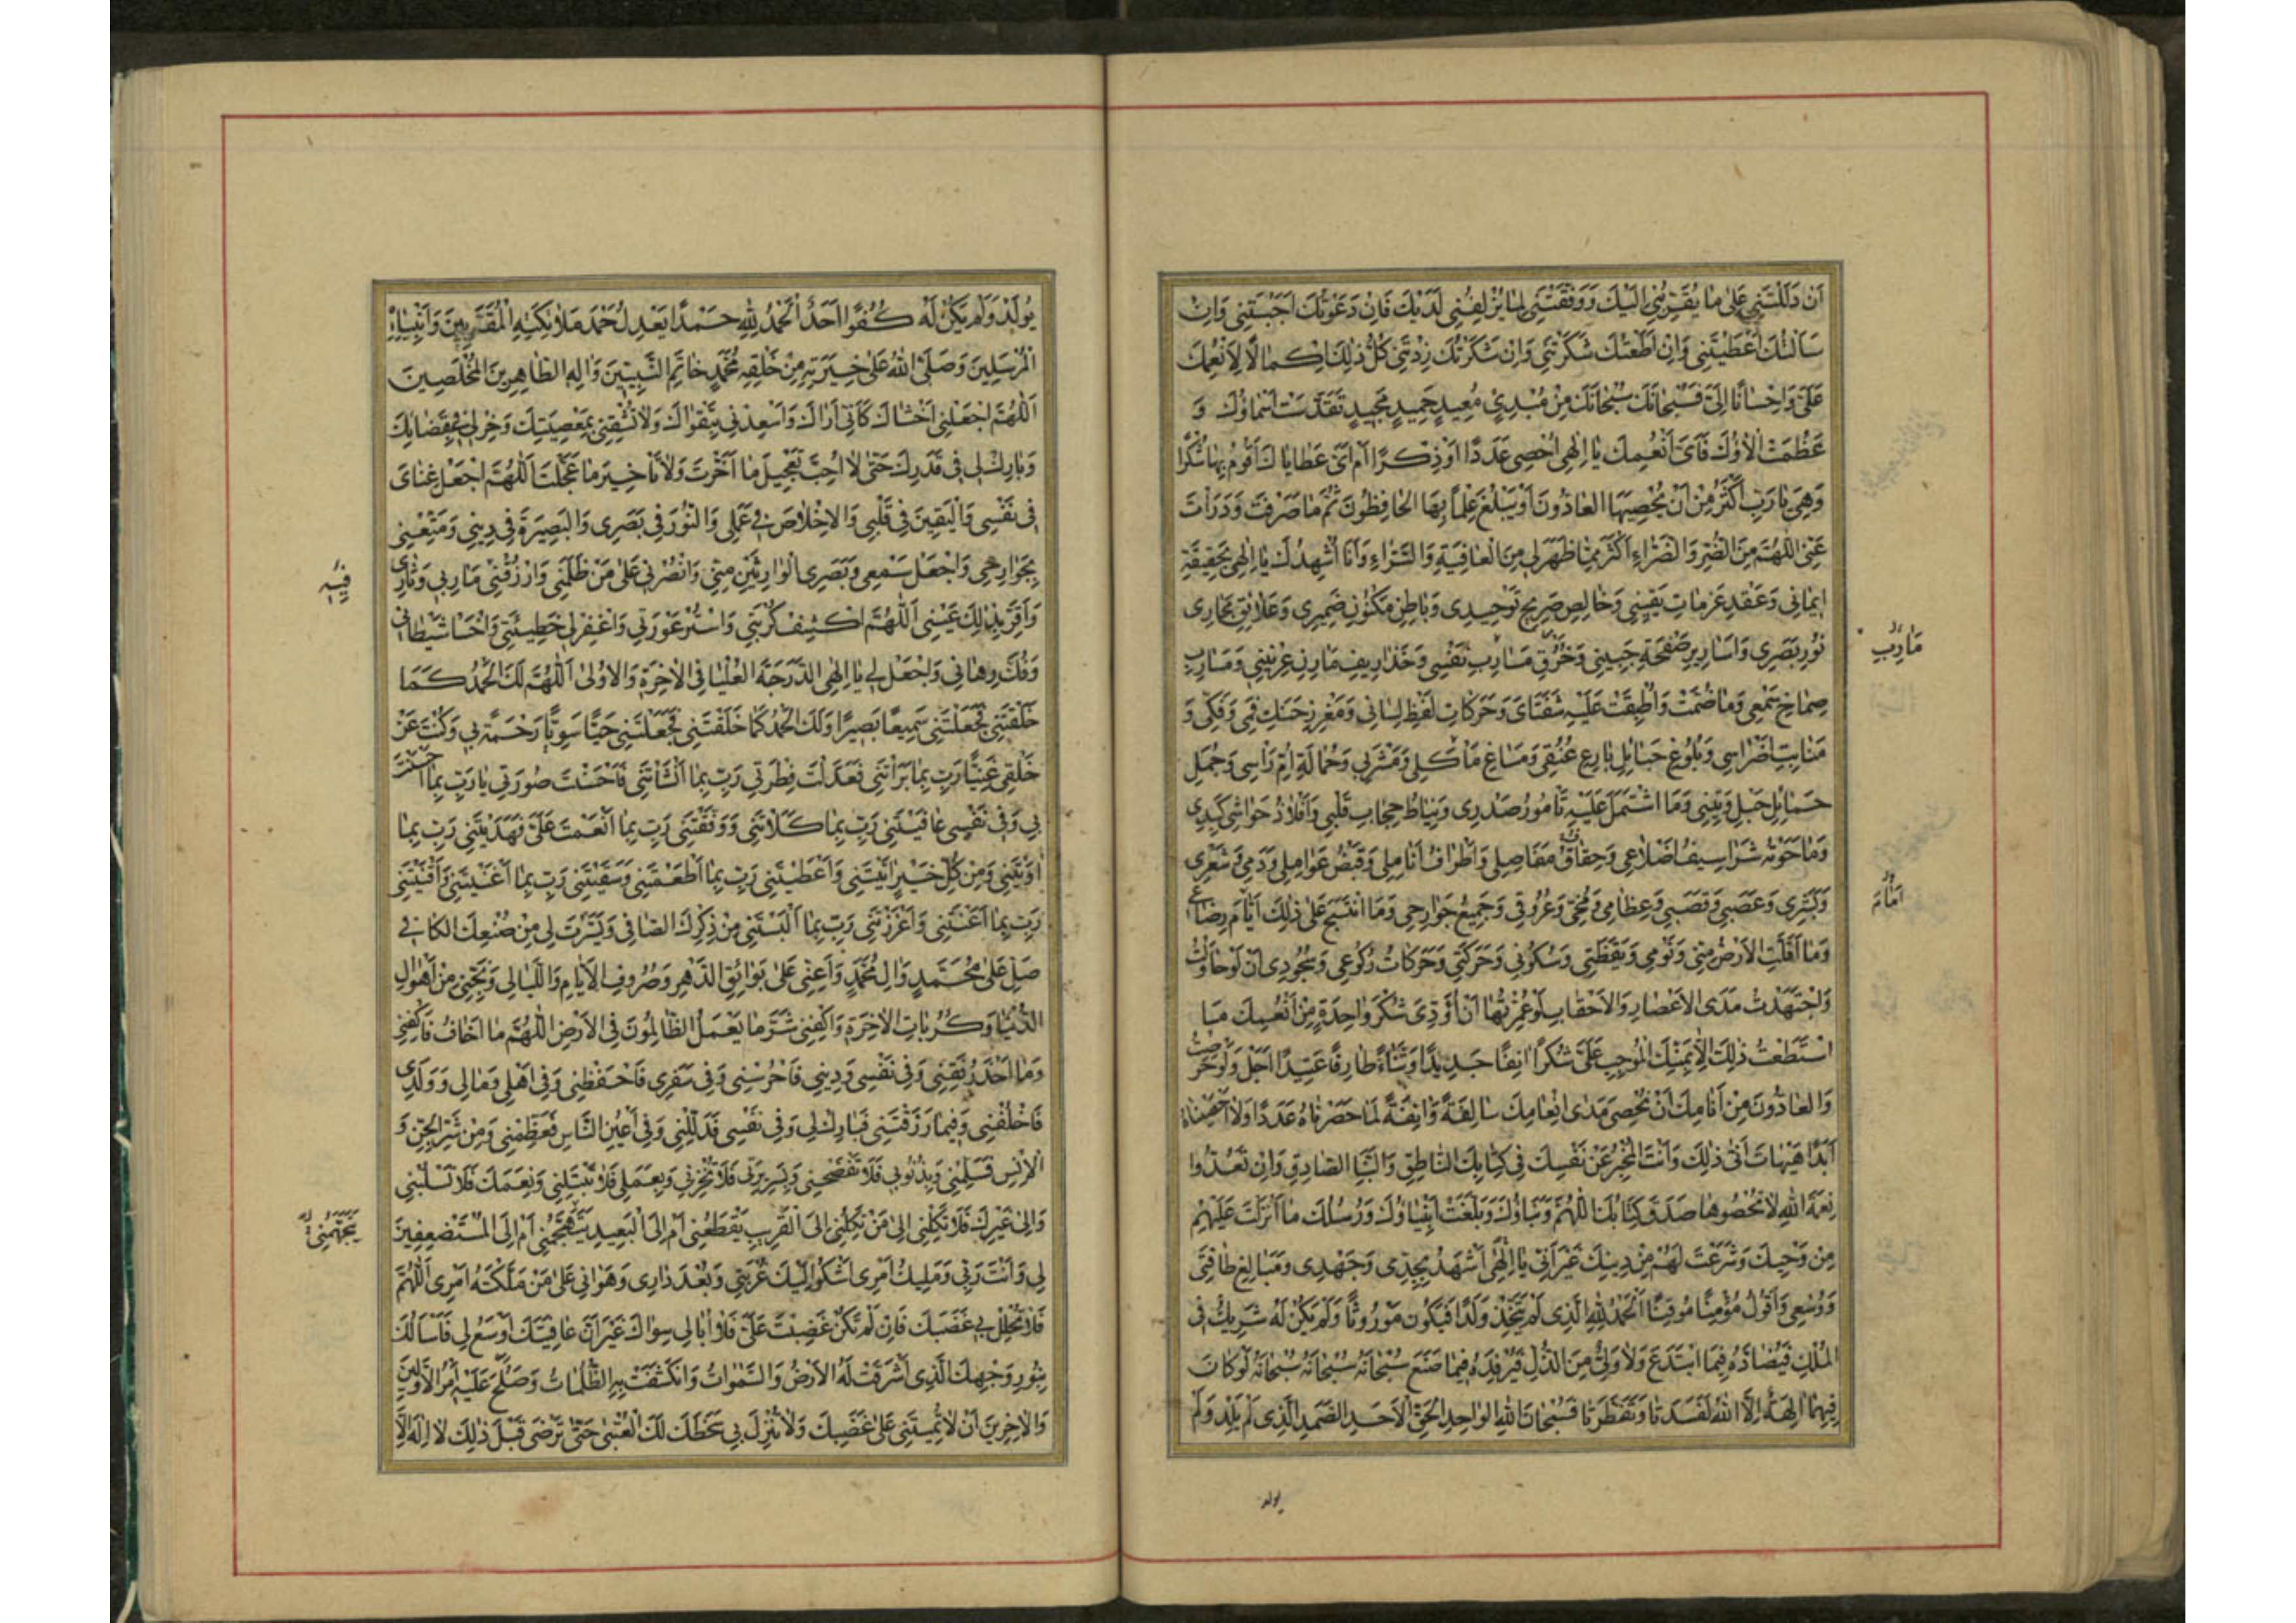 اَنْ دَلَلْتَنِي عَلىٰ ما يُقَرِّبُنِي اِلَيْكَ وَوَفَّقْتَنِي لِما يُزْلِفُنِي لَدَيْكَ فَاِنْ دَعَوْتُكَ اَجَبْتَنِي وَاِنْ
سَاَلْتُكَ اَعْطَيْتَنِي وَاِنْ اَطَعْتُكَ شَكَرْتَنِي وَاِنْ شَكَرْتُكَ زِدْتَنِي كُلُّ ذٰلِكَ اِكْمالًا لِاَنْعُمِكَ
عَلَيَّ وَاِحْسانًا اِلَيَّ فَسُبْحانَكَ سُبْحانَكَ مِنْ مُبْدِئٍ مُعِيدٍ حَمِيدٍ مَجِيدٍ تَقَدَّسَتْ اَسْماؤُكَ وَ
عَظُمَتْ اٰلاؤُكَ فَاَيَّ اَنْعُمِكَ يا اِلٰهِي اُحْصِي عَدَدًا اَوْ ذِكْرًا اَمْ اَيَّ عَطاياكَ اَقُومُ بِها شُكْرًا
وَهِيَ يا رَبِّ اَكْثَرُ مِنْ اَنْ يُحْصِيَهَا العادُّونَ اَوْ يَبْلُغَ عِلْمًا بِهَا الحافِظُونَ ثُمَّ ما صَرَفْتَ وَدَرَاْتَ
عَنِّي اللّٰهُمَّ مِنَ الضُّرِّ وَالضَّرّاءِ اَكْثَرُ مِمّا ظَهَرَ لِي مِنَ العافِيَةِ وَالسَّرّاءِ وَاَنَا اُشْهِدُكَ يا اِلٰهِي بِحَقِيقَةِ
اِيمانِي وَعَقْدِ عَزَماتِ يَقِينِي وَخالِصِ صَرِيحِ تَوْحِيدِي وَباطِنِ مَكْنُونِ ضَمِيرِي وَعَلائِقِ مَجارِي
نُورِ بَصَرِي وَاَسارِيرِ صَفْحَةِ جَبِينِي وَخُرْقِ مَسارِبِ نَفْسِي وَخَذارِيفِ مارِنِ عِرْنِينِي وَمَسارِبِ
مَآرِبِ
صِماخِ سَمْعِي وَما ضُمَّتْ وَاَطْبَقَتْ عَلَيْهِ شَفَتايَ وَحَرَكاتِ لَفْظِ لِسانِي وَمَغْرِزِ حَنَكِ فَمِي وَفَكِّي وَ
مَنابِتِ اَضْراسِي وَبُلُوغِ حَبائِلِ بارِعِ عُنُقِي وَمَساغِ مَأْكَلِي وَمَشْرَبِي وَحُمالَةِ اُمِّ رَأْسِي وَجُمَلِ
حَمائِلِ حَبْلِ وَتِينِي وَما اشْتَمَلَ عَلَيْهِ تامُورُ صَدْرِي وَنِياطُ حِجابِ قَلْبِي وَاَفْلاذُ حَواشِي كَبِدِي
وَما حَوَتْهُ شَراسِيفُ اَضْلاعِي وَحِقاقُ مَفاصِلِي وَاَطْرافُ اَنامِلِي وَقَبْضُ عَوامِلِي وَدَمِي وَشَعْرِي
وَبَشَرِي وَعَصَبِي وَقَصَبِي وَعِظامِي وَمُخِّي وَعُرُوقِي وَجَمِيعُ جَوارِحِي وَمَا انْتَسَجَ عَلىٰ ذٰلِكَ اَيّامَ رِضاعِي
وَما اَقَلَّتِ الاَرْضُ مِنِّي وَنَوْمِي وَيَقَظَتِي وَسُكُونِي وَحَرَكَتِي وَحَرَكاتُ رُكُوعِي وَسُجُودِي اَنْ لَوْ حاوَلْتُ
وَاجْتَهَدْتُ مَدَى الاَعْصارِ وَالاَحْقابِ لَوْ عُمِّرْتُها اَنْ اُؤَدِّيَ شُكْرَ واحِدَةٍ مِنْ اَنْعُمِكَ مَا
اسْتَطَعْتُ ذٰلِكَ اِلّا بِمَنِّكَ المُوجِبِ عَلَيَّ شُكْرًا اٰنِفًا جَدِيدًا وَثَناءً طارِفًا عَتِيدًا اَجَلْ وَلَوْ حَرَصْتُ
وَالعادُّونَ مِنْ اَنامِكَ اَنْ نُحْصِيَ مَدىٰ اِنْعامِكَ سالِفَةً وَاٰنِفَةً لَما حَصَرْناهُ عَدَدًا وَلا اَحْصَيْناهُ
اَبَدًا هَيْهاتَ اَنّىٰ ذٰلِكَ وَاَنْتَ المُخْبِرُ عَنْ نَفْسِكَ فِي كِتابِكَ النّاطِقِ وَالنَّبَإِ الصّادِقِ وَاِنْ تَعُدُّوا
نِعْمَةَ اللهِ لا تُحْصُوها صَدَقَ كِتابُكَ اللّٰهُمَّ وَنَبَاؤُكَ وَبَلَّغَتْ اَنْبِياؤُكَ وَرُسُلُكَ ما اَنْزَلْتَ عَلَيْهِمْ
مِنْ وَحْيِكَ وَشَرَعْتَ لَهُمْ مِنْ دِينِكَ غَيْرَ اَنِّي يا اِلٰهِي اَشْهَدُ بِجِدِّي وَجَهْدِي وَمَبالِغِ طاقَتِي
وَوُسْعِي وَاَقُولُ مُؤْمِنًا مُوقِنًا اَلْحَمْدُ لِلّٰهِ الَّذِي لَمْ يَتَّخِذْ وَلَدًا فَيَكُونَ مَوْرُوثًا وَلَمْ يَكُنْ لَهُ شَرِيكٌ فِي
المُلْكِ فَيُضادَّهُ فِيمَا ابْتَدَعَ وَلا وَلِيٌّ مِنَ الذُّلِّ فَيُرْفِدَهُ فِيما صَنَعَ سُبْحانَهُ سُبْحانَهُ سُبْحانَهُ لَوْ كانَ
فِيهِما اٰلِهَةٌ اِلَّا اللهُ لَفَسَدَتا وَتَفَطَّرَتا فَسُبْحانَ اللهِ الواحِدِ الحَقِّ الاَحَدِ الصَّمَدِ الَّذِي لَمْ يَلِدْ وَلَمْ
يولد
يُولَدْ وَلَمْ يَكُنْ لَهُ كُفُوًا اَحَدٌ اَلْحَمْدُ لِلّٰهِ حَمْدًا يَعْدِلُ حَمْدَ مَلائِكَتِهِ المُقَرَّبِينَ وَاَنْبِيائِهِ
المُرْسَلِينَ وَصَلَّى اللهُ عَلىٰ خِيَرَتِهِ مِنْ خَلْقِهِ مُحَمَّدٍ خاتَمِ النَّبِيِّينَ وَاٰلِهِ الطّاهِرِينَ المُخْلَصِينَ
اَللّٰهُمَّ اجْعَلْنِي اَخْشاكَ كَاَنِّي اَراكَ وَاَسْعِدْنِي بِتَقْواكَ وَلا تُشْقِنِي بِمَعْصِيَتِكَ وَخِرْ لِي فِي قَضائِكَ
وَبارِكْ لِي فِي قَدَرِكَ حَتّىٰ لا اُحِبَّ تَعْجِيلَ ما اَخَّرْتَ وَلا تَأْخِيرَ ما عَجَّلْتَ اَللّٰهُمَّ اجْعَلْ غِنايَ
فِي نَفْسِي وَالْيَقِينَ فِي قَلْبِي وَالاِخْلاصَ فِي عَمَلِي وَالنُّورَ فِي بَصَرِي وَالبَصِيرَةَ فِي دِينِي وَمَتِّعْنِي
بِجَوارِحِي وَاجْعَلْ سَمْعِي وَبَصَرِي الوارِثَيْنِ مِنِّي وَانْصُرْنِي عَلىٰ مَنْ ظَلَمَنِي وَارْزُقْنِي مَآرِبِي وَثارِي
فِيهِ
وَاَقِرَّ بِذٰلِكَ عَيْنِي اَللّٰهُمَّ اكْشِفْ كُرْبَتِي وَاسْتُرْ عَوْرَتِي وَاغْفِرْ لِي خَطِيئَتِي وَاخْسَأْ شَيْطانِي
وَفُكَّ رِهانِي وَاجْعَلْ لِي يا اِلٰهِي الدَّرَجَةَ العُلْيا فِي الاٰخِرَةِ وَالاُولىٰ اَللّٰهُمَّ لَكَ الحَمْدُ كَمَا
خَلَقْتَنِي فَجَعَلْتَنِي سَمِيعًا بَصِيرًا وَلَكَ الحَمْدُ كَما خَلَقْتَنِي فَجَعَلْتَنِي حَيًّا سَوِيًّا رَحْمَةً بِي وَكُنْتَ عَنْ
خَلْقِي غَنِيًّا رَبِّ بِما بَرَأْتَنِي فَعَدَّلْتَ فِطْرَتِي رَبِّ بِما اَنْشَأْتَنِي فَاَحْسَنْتَ صُورَتِي يا رَبِّ بِما اَحْسَنْتَ
بِي وَفِي نَفْسِي عافَيْتَنِي رَبِّ بِما كَلَأْتَنِي وَوَفَّقْتَنِي رَبِّ بِما اَنْعَمْتَ عَلَيَّ فَهَدَيْتَنِي رَبِّ بِما
اٰوَيْتَنِي وَمِنْ كُلِّ خَيْرٍ اٰتَيْتَنِي وَاَعْطَيْتَنِي رَبِّ بِما اَطْعَمْتَنِي وَسَقَيْتَنِي رَبِّ بِما اَغْنَيْتَنِي وَاَقْنَيْتَنِي
رَبِّ بِما اَعَنْتَنِي وَاَعْزَزْتَنِي رَبِّ بِما اَلْبَسْتَنِي مِنْ ذِكْرِكَ الصّافِي وَيَسَّرْتَ لِي مِنْ صُنْعِكَ الكافِي
صَلِّ عَلىٰ مُحَمَّدٍ وَاٰلِ مُحَمَّدٍ وَاَعِنِّي عَلىٰ بَوائِقِ الدَّهْرِ وَصُرُوفِ الاَيّامِ وَاللَّيالِي وَنَجِّنِي مِنْ اَهْوالِ
الدُّنْيا وَكُرُباتِ الاٰخِرَةِ وَاكْفِنِي شَرَّ ما يَعْمَلُ الظّالِمُونَ فِي الاَرْضِ اَللّٰهُمَّ ما اَخافُ فَاكْفِنِي
وَما اَحْذَرُ فَقِنِي وَفِي نَفْسِي وَدِينِي فَاحْرُسْنِي وَفِي سَفَرِي فَاحْفَظْنِي وَفِي اَهْلِي وَمالِي وَوَلَدِي
فَاخْلُفْنِي وَفِيما رَزَقْتَنِي فَبارِكْ لِي وَفِي نَفْسِي فَذَلِّلْنِي وَفِي اَعْيُنِ النّاسِ فَعَظِّمْنِي وَمِنْ شَرِّ الجِنِّ وَ
الاِنْسِ فَسَلِّمْنِي وَبِذُنُوبِي فَلا تَفْضَحْنِي وَبِسَرِيرَتِي فَلا تُخْزِنِي وَبِعَمَلِي فَلا تَبْتَلِنِي وَنِعَمَكَ فَلا تَسْلُبْنِي
وَاِلىٰ غَيْرِكَ فَلا تَكِلْنِي اِلىٰ مَنْ تَكِلُنِي اِلَى القَرِيبِ يَقْطَعُنِي اَمْ اِلَى البَعِيدِ يَتَهَجَّمُنِي اَمْ اِلَى المُسْتَضْعِفِينَ
يَتَجَهَّمُنِي
لِي وَاَنْتَ رَبِّي وَمَلِيكُ اَمْرِي اَشْكُو اِلَيْكَ غُرْبَتِي وَبُعْدَ دارِي وَهَوانِي عَلىٰ مَنْ مَلَّكْتَهُ اَمْرِي اَللّٰهُمَّ
فَلا تُحْلِلْ بِي غَضَبَكَ فَاِنْ لَمْ تَكُنْ غَضِبْتَ عَلَيَّ فَلا اُبالِي سِواكَ غَيْرَ اَنَّ عافِيَتَكَ اَوْسَعُ لِي فَاَسْأَلُكَ
بِنُورِ وَجْهِكَ الَّذِي اَشْرَقَتْ لَهُ الاَرْضُ وَالسَّمٰواتُ وَانْكَشَفَتْ بِهِ الظُّلُماتُ وَصَلُحَ عَلَيْهِ اَمْرُ الاَوَّلِينَ
وَالاٰخِرِينَ اَنْ لا تُمِيتَنِي عَلىٰ غَضَبِكَ وَلا تُنْزِلَ بِي سَخَطَكَ لَكَ العُتْبىٰ حَتّىٰ تَرْضىٰ قَبْلَ ذٰلِكَ لا اِلٰهَ اِلّا